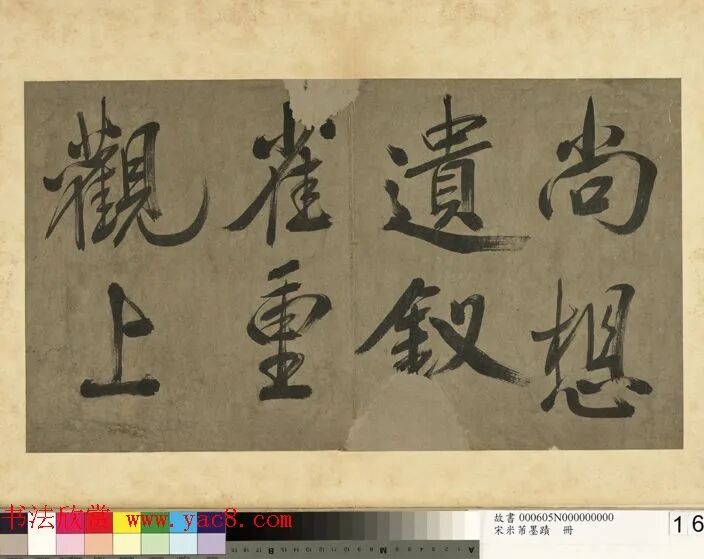 尚想
遺釵
雀重
觀上
书法欣赏 www.yac8.com
故書 000605N000000000
宋米芾墨蹟 冊
16